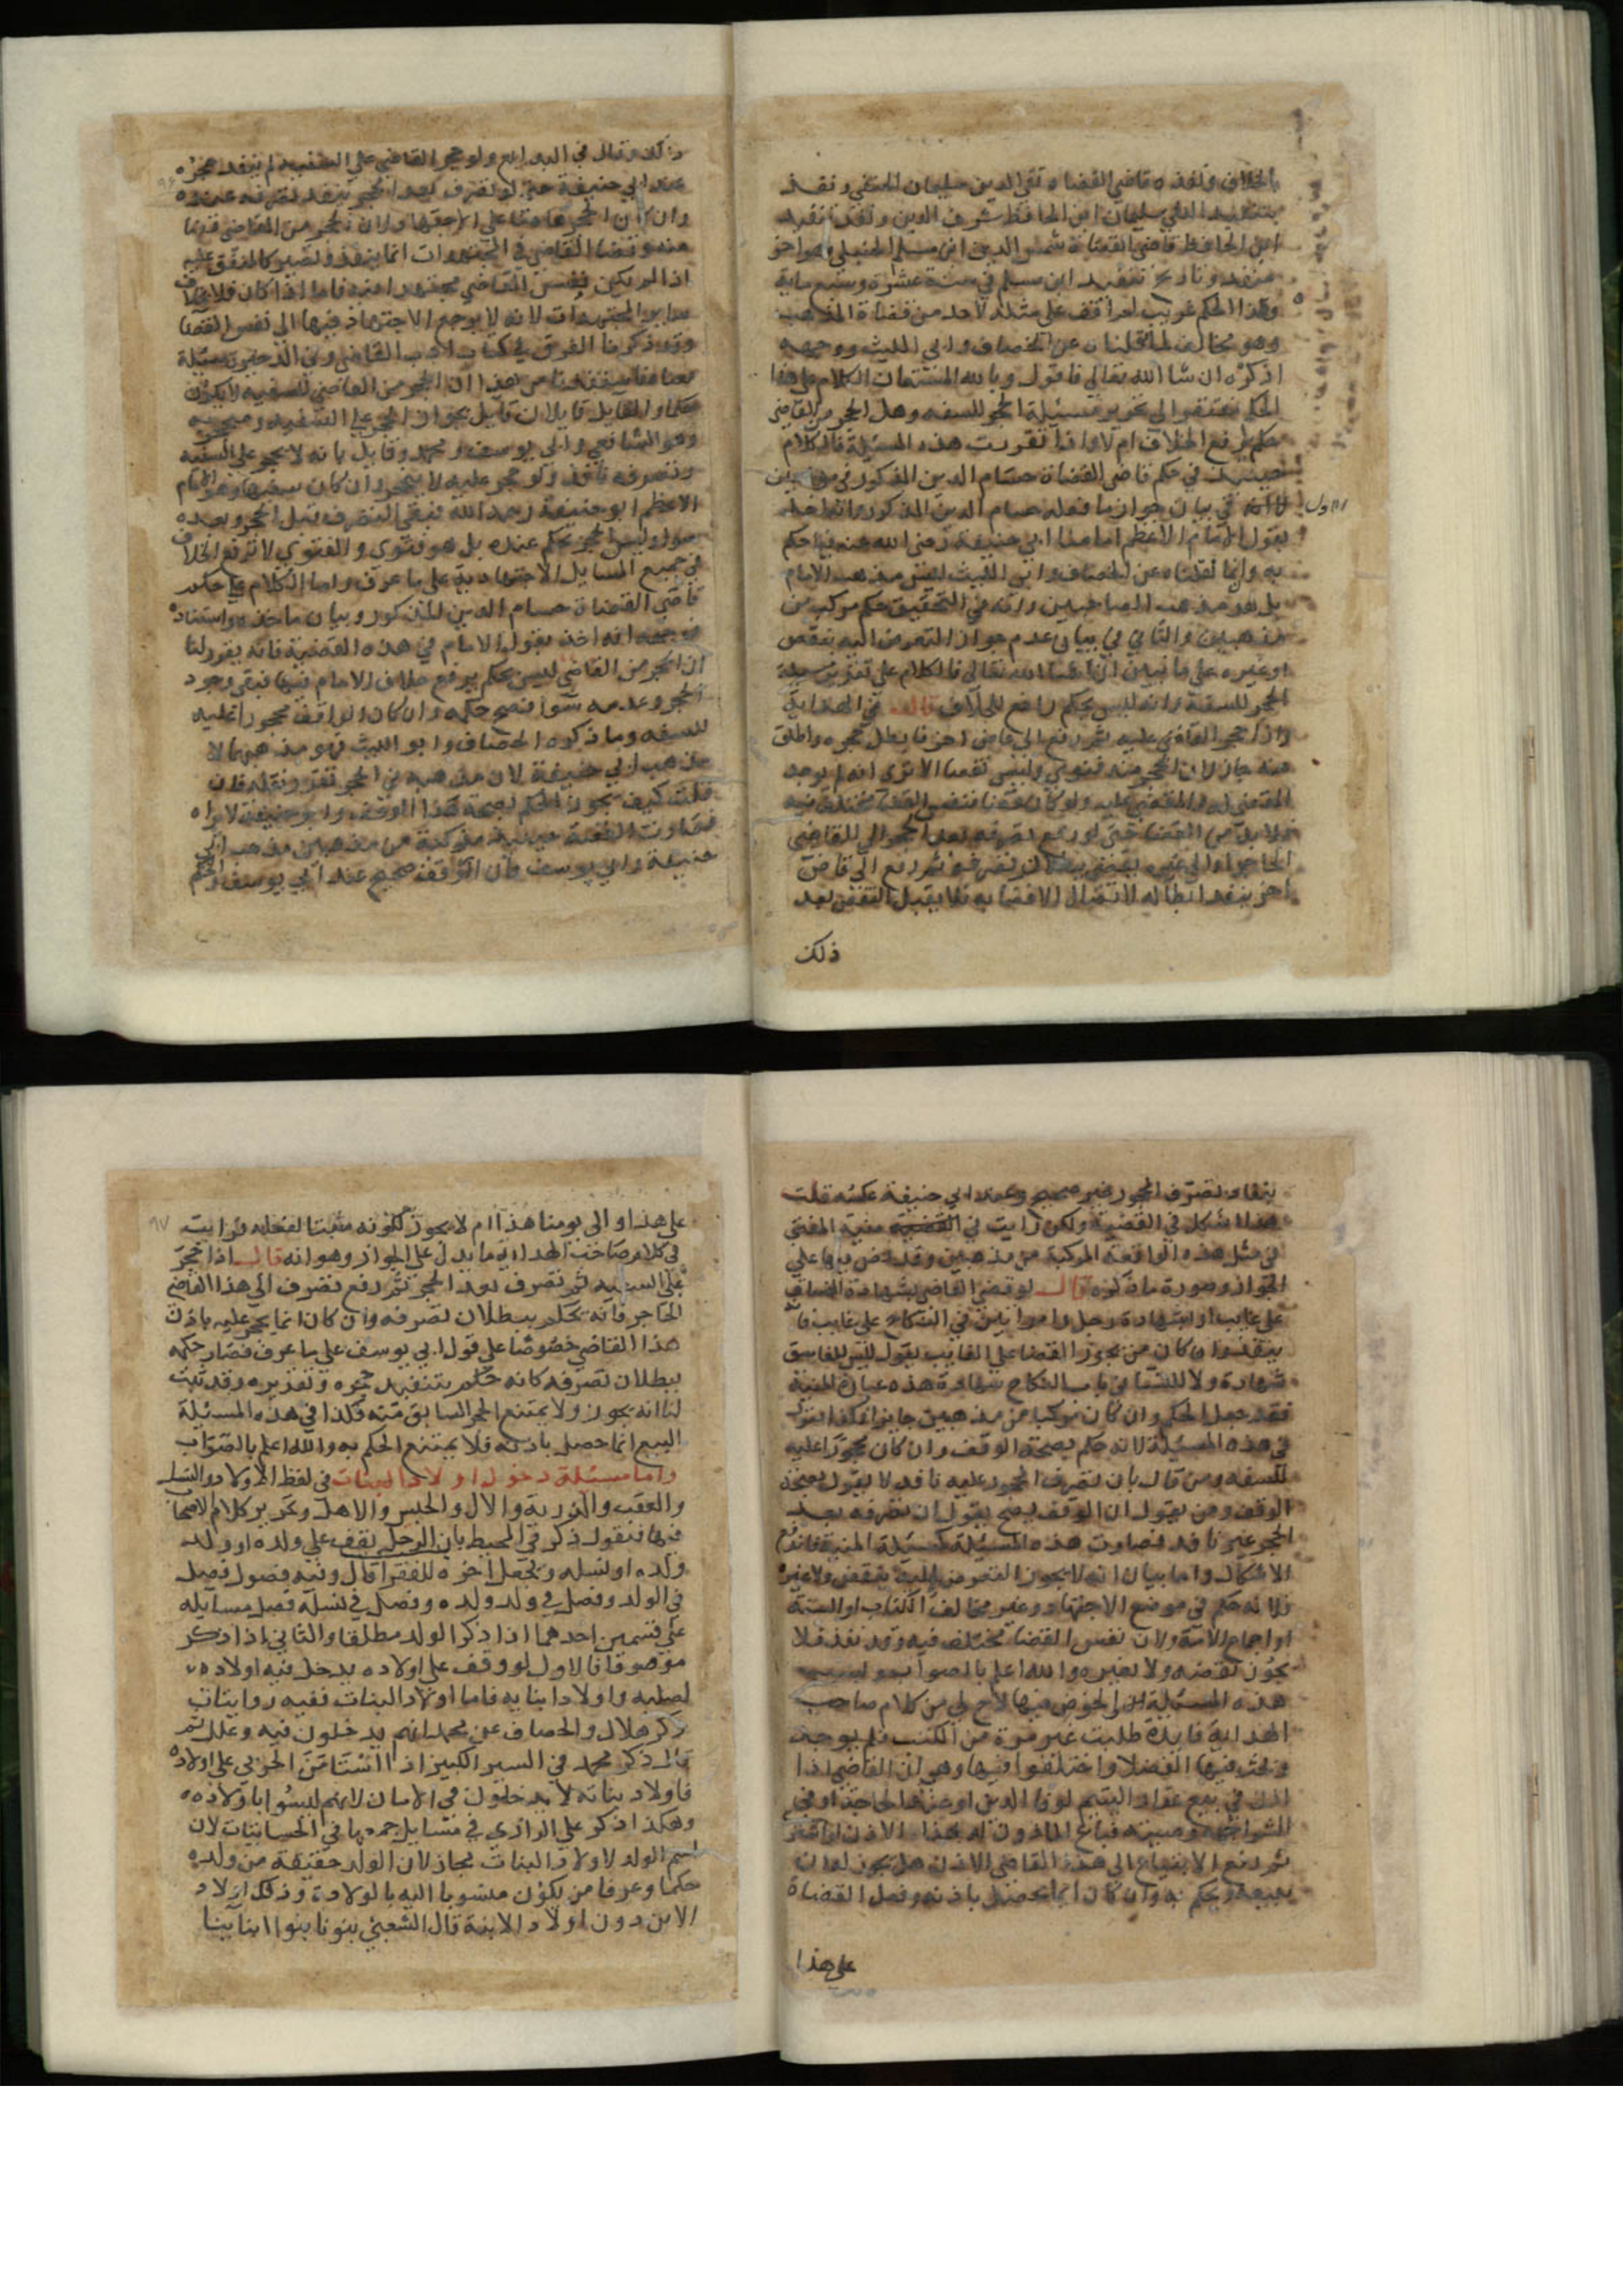 بالخلاف ونفذه قاضي القضاه تقي الدين سليمان الحنبلي ونفذ
تنفيذ التقي سليمان ابن الحافظ شرف الدين ونفذ تنفيذ
ابن الحافظ قاضي القضاة شمس الدين ابن مسلم الحنبلي وهو اخر
منفذ وتاريخ تنفيذ ابن مسلم في ستة عشرة وسبع ماية
وهذا الحكم غريب لم اقف على مثله لاحد من قضاة المذاهب
وهو مخالف لما نقلناه عن الخصاف وابي الليث ووجهه
اذكره ان شا الله تعالى فاقول وبالله المستعان الكلام على هذا
الحكم يفتقر الى تحرير مسئلة الحجر للسفه وهل الحجر من القاضي
حكم يرفع الخلاف ام لا واذا تقررت هذه المسئلة فالكلام
حينئذ في حكم قاضي القضاة حسام الدين المذكور في
الاول
في بيان جواز ما فعله حسام الدين المذكور وانه اخذ
بقول الامام الاعظم امامنا ابي حنيفة رضي الله عنه فيما حكم
به وانما نقلناه عن الخصاف وابي الليث ليس مذهب الامام
بل هو مذهب الصاحبين وانه في التحقيق حكم مركب من
مذهبين والثاني في بيان عدم جواز التعرض اليه بنقض
او غيره على ما نبين ان شا الله تعالى فالكلام على تقرير مسئلة
الحجر للسفه وانه ليس بحكم رافع للخلاف قال في الهداية
واذا حجر القاضي عليه ثم رفع الى قاض اخر فابطل حجره واطلق
عنه جاز لان الحجر منه فتوى وليس بقضا الا ترى انه لم يوجد
المقضي له والمقضي عليه ولو كان قضا فنفس القضا مختلف فيه
فلا بد من القضا حتى لو رفع تصرفه بعد الحجر الى القاضي
الحاجر او الى غيره فقضى ببطلان تصرفه ثم رفع الى قاض
اخر نفذ ابطاله لاتصال الامضا به فلا يقبل النقض بعد
ذلك
ذلك وقال في البدايع ولو حجر القاضي على السفيه لم ينفذ حجره
عند ابي حنيفة حتى لو تصرف بعد الحجر ينفذ تصرفه عنده
وان كان الحجر هاهنا على الاجتهاد وان الحجر من القاضي قضا
منه وقضا القاضي في المجتهدات انما ينفذ ويصير كالمتفق عليه
اذا لم يكن نفس القاضي مجتهدا فيه فاما اذا كان فلا بخلاف
ساير المجتهدات لانه لا يرجع الاجتهاد فيها الى نفس القضا
وقد ذكرنا الفرق في كتاب ادب القاضي وفي الذخيرة مسئلة
الحجر من القاضي للسفيه لا يكون
حكما والقايل قايلان قايل بجواز الحجر على السفيه ومنهم
وهو الشافعي وابي يوسف ومحمد وقايل بانه لا يحجر على السفيه
وتصرفه نافذ ولو حجر عليه لا ينحجر وان كان سفيها وهو الامام
الاعظم ابو حنيفة رحمه الله فبقى التصرف قبل الحجر وبعده
سوا وليس الحجر بحكم عنده بل هو فتوى والفتوى لا ترفع الخلاف
في جميع المسايل الاجتهادية على ما عرف واما الكلام على حكم
قاضي القضاة حسام الدين المذكور وبيان ماخذه واستناده
فوجهه انه اخذ بقول الامام في هذه القضية فانه يقول لنا
ان الحجر من القاضي ليس بحكم يرفع خلاف الامام فيها فبقى وجود
الحجر وعدمه سوا فصح حكمه وان كان الواقف محجورا عليه
للسفه وما ذكره الخصاف وابو الليث فهو مذهبهما لا
مذهب ابي حنيفة لان مذهبه في الحجر تقرر ونقله فان
قلت كيف يجوز الحكم بصحة هذا الوقف وابو حنيفة لا يراه
فصارت القضية حينئذ مركبة من مذهبين مذهب ابي
حنيفة وابي يوسف فان الوقف صحيح عند ابي يوسف والحكم
بنفاذ تصرف المحجور غير صحيح وعند ابي حنيفة عكسه قلت
هذا اشكل في القضية ولكن رايت في القضية منية المفتي
في مثل هذه الواقعة المركبة من مذهبين وقد نص فيها على
الجواز وصورة ما ذكره قال لو قضى القاضي بشهادة الفساق
على غايب او بشهادة رجل وامراتين في النكاح على غايب فانه
ينفذ وان كان من يجوز القضا على الغايب يقول ليس للفاسق
شهادة ولا للنسا في باب النكاح شهادة هذه عبارة المنية
فقد جعل الحكم وان كان مركبا من مذهبين جايزا فكذا نقول
في هذه المسئلة لانه حكم بصحة الوقف وان كان محجورا عليه
للسفه ومن قال بان تصرف المحجور عليه نافذ لا يقول بصحة
الوقف ومن يقول ان الوقف يصح يقول ان تصرفه بعد
الحجر غير نافذ فصارت هذه المسئلة كمسئلة المنية فاندفع
الاشكال واما بيان انه لا يجوز التعرض اليه بنقض ولا غيره
فلانه حكم في موضع الاجتهاد وغير مخالف الكتاب او السنة
او اجماع الامة ولان نفس القضا مختلف فيه وقد نفذ فلا
يجوز نقضه ولا تغييره والله اعلم بالصواب
هذه المسئلة الخوض فيها لاح لي من كلام صاحب
الهداية فايدة طلبت غير مرة من الكتب فلم يوجد
وبحث فيها الفضلا واختلفوا فيها وهي ان القاضي اذا
اذن في بيع عقار اليتيم لوفا الدين او عند الحاجة او في
فباع الماذون له بهذا الاذن او اشترى
ثم رفع الابتياع الى هذا القاضي الاذن هل يجوز له ان
ببيعه ويحكم به وان كان انما يحصل باذنه وفعل القضاة
على هذا
٩٧
على هذا والى يومنا هذا ام لا يجوز لكونه مثبتا لفعله ورايت
في كلام صاحب الهداية ما يدل على الجواز وهو انه قال اذا حجر
على السفيه ثم تصرف بعد الحجر ثم رفع تصرف الى هذا القاضي
الحاجر فانه يحكم ببطلان تصرفه وان كان انما يحجر عليه باذن
هذا القاضي خصوصا على قول ابي يوسف على ما عرف فصار حكمه
ببطلان تصرفه كانه حكم بتنفيذ حجره وتقريره وقد ثبت
لنا انه يجوز ولا يمتنع الحجر السابق منه فكذا في هذه المسئلة
البيع انما حصل باذنه فلا يمتنع الحكم به والله اعلم بالصواب
واما مسئلة دخول اولاد البنات في لفظ الاولاد والنسل
والعقب والذرية والال والجنس والاهل وتحرير كلام الاصحاب
فيها فنقول ذكر في المحيط باب الرجل يقف على ولده او ولد
ولده او نسله ويجعل اخره للفقرا قال وفيه فصول فصل
في الولد وفصل في ولد ولده وفصل في نسله فصل مسايله
على قسمين احدهما اذا ذكر الولد مطلقا والثاني اذا ذكر
موصوفا فالاول لو وقف على اولاده يدخل فيه اولاده
لصلبه واولاد ابنايه فاما اولاد البنات ففيه روايتان
ذكر هلال والخصاف عن محمد انهم يدخلون فيه وعلل ثم
قال ذكر محمد في السير الكبير اذا استامن الحربي على اولاده
فاولاد بناته لا يدخلون في الامان لانهم ليسوا باولاده
وهكذا ذكر علي الرازي في مسايل جمعها في الحسابيات لان
اسم الولد لاولاد البنات مجاز لان الولد حقيقة من ولده
حكما وعرفا من يكون منسوبا اليه بالولادة وذلك اولاد
الابن دون اولاد الابنة قال الشعبي بنونا بنوا ابناينا